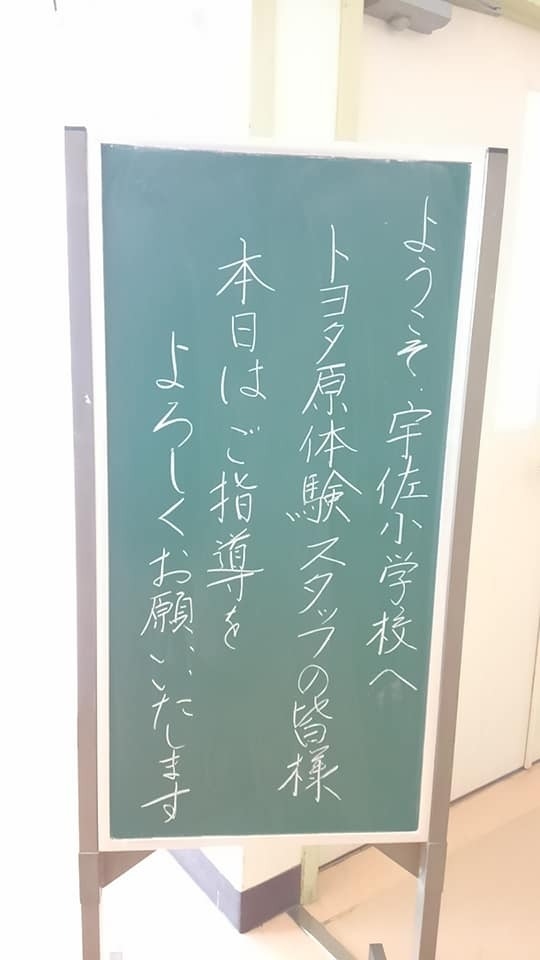 ようこそ.宇佐小学校へ
トヨタ原体験スタッフの皆様
本日はご指導を
よろしくお願いいたします